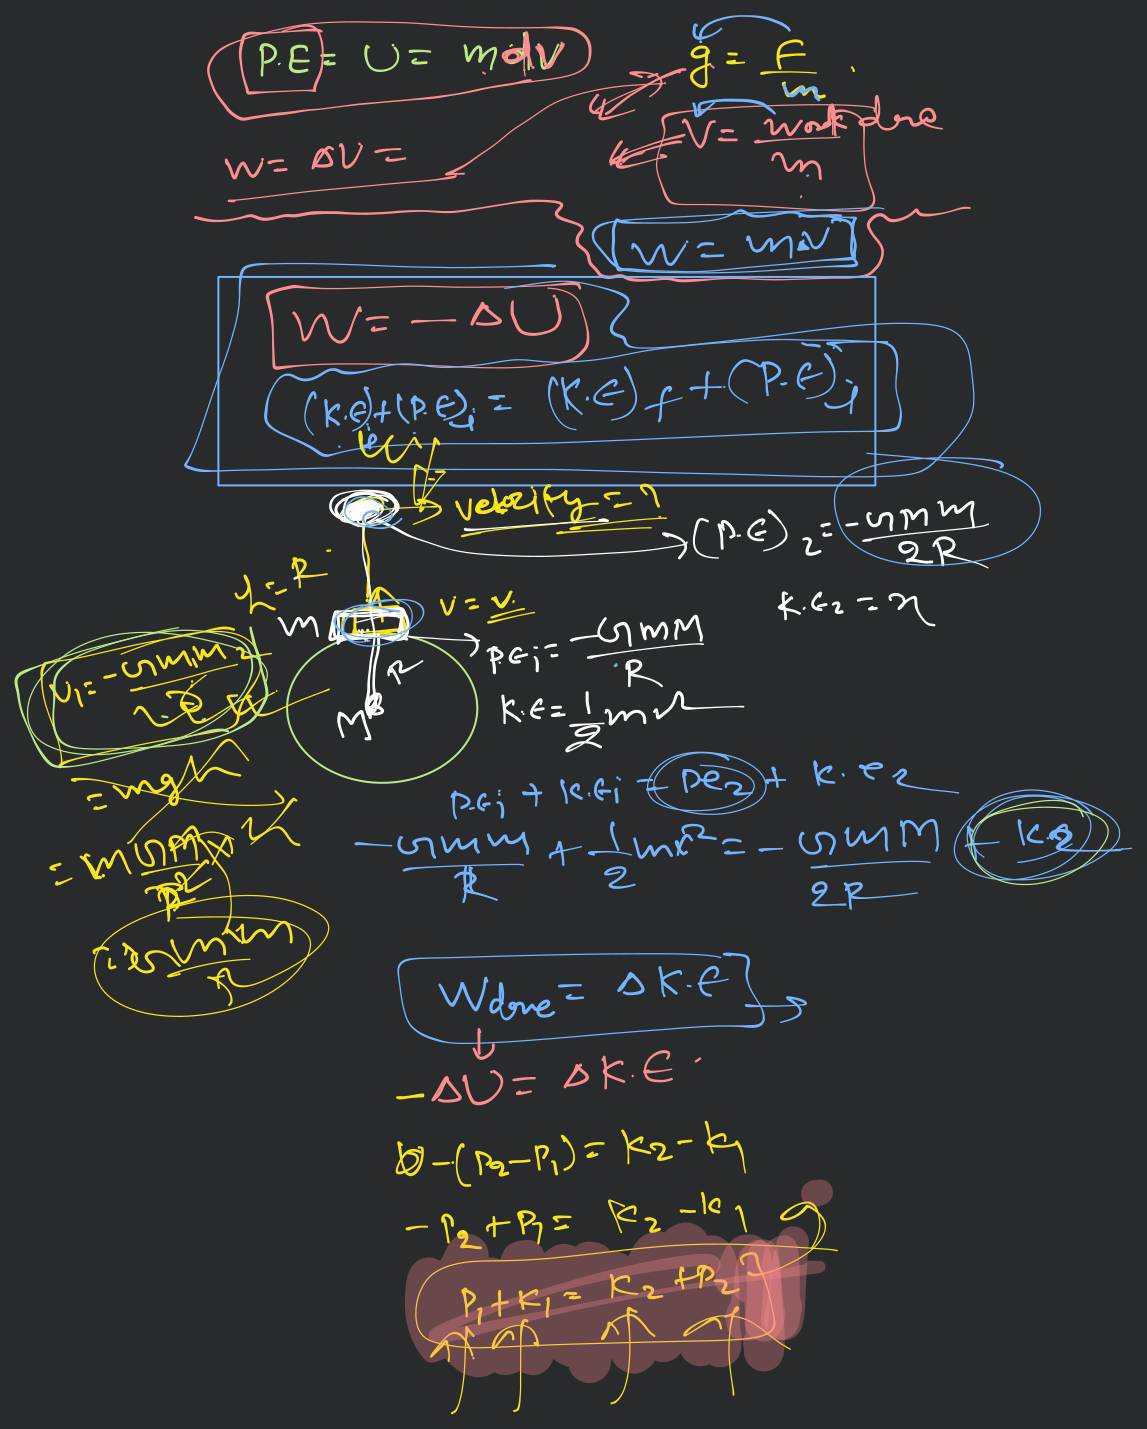 P.E = U = mdV
g = F/m
V = work done/m
W = ΔV =
W = mΔV
W = -ΔU
(K.E)i + (P.E)i = (K.E)f + (P.E)f
velocity = ?
(P.E)2 = -GMm/2R
h = R
K.E2 = x
m
v = v.
P.Ei = -GMm/R
R
K.E = 1/2 mv²
M
= mgh
P.Ei + K.Ei = PE2 + K.E2
-GMm/R + 1/2 mv² = -GMM/2R + K2
Wdone = ΔK.E
-ΔU = ΔK.E
-(P2-P1) = K2-K1
-P2+P1 = K2-K1
P1+K1 = K2+P2